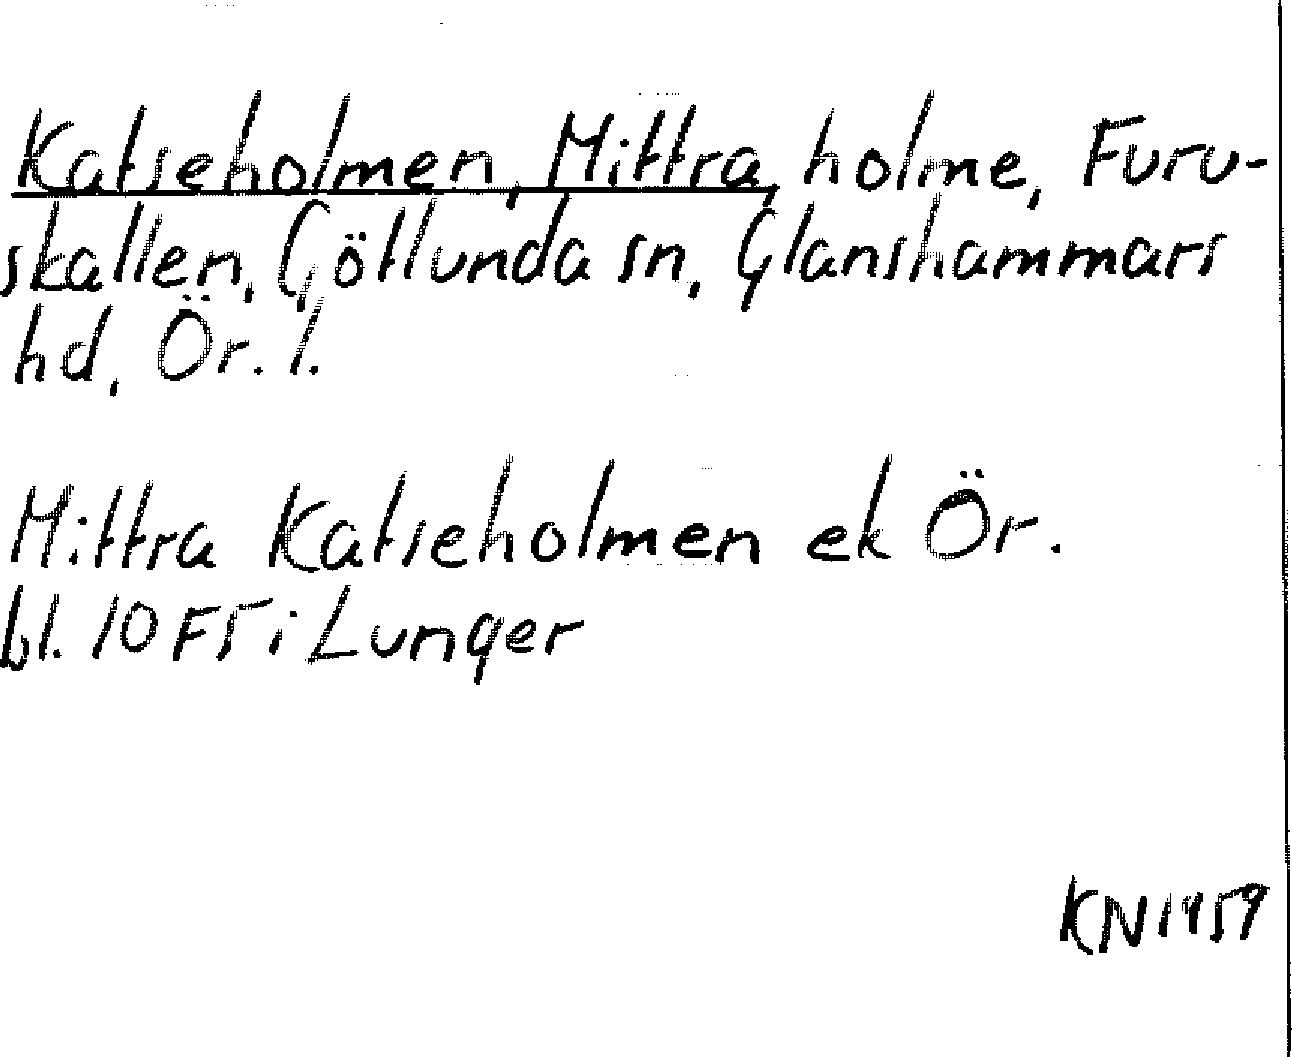 Katseholmen, Mittra, holme, Furu-
skallen, Götlunda sn, Glanshammars
hd, Ör. l.
Mittra Katseholmen ek Ör.
bl. 10 F5 i Lunger
KN 1959